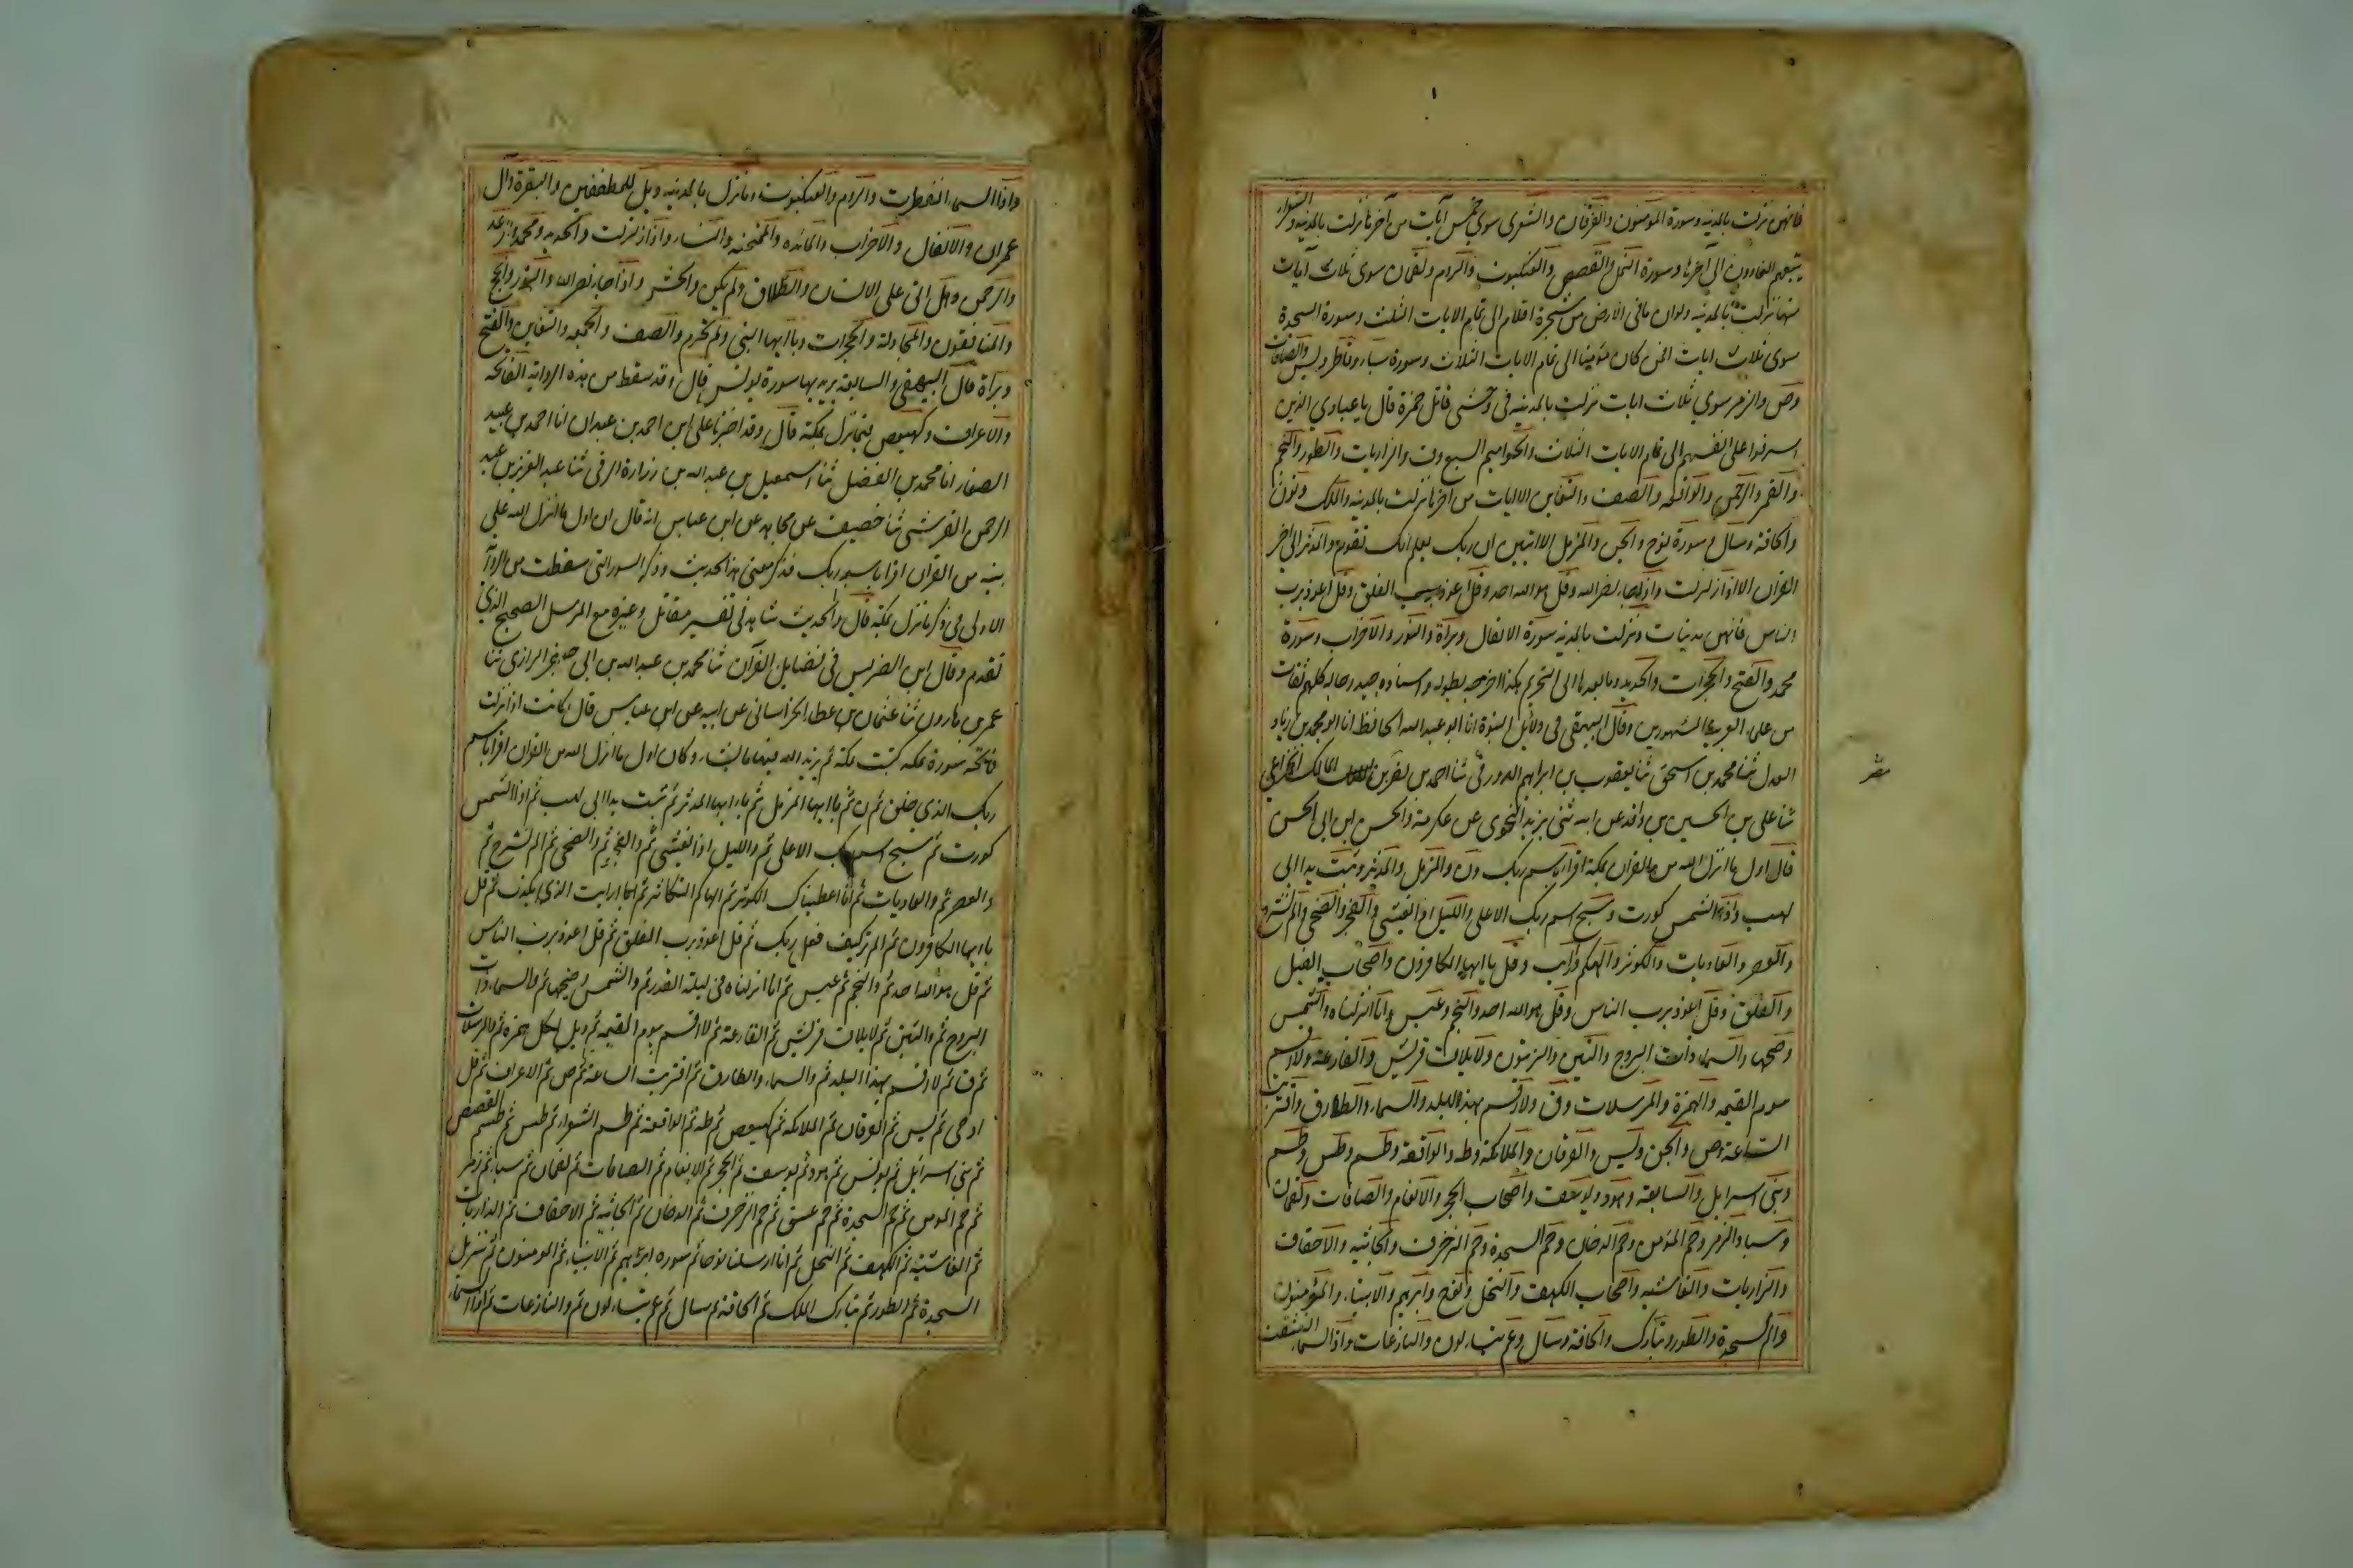 فانهن نزلت بالمدينه وسورة المومنون والفرقان والشعرى سوى خمس آيات من آخرها نزلت بالمدينه والشعراء
يتبعهم الغاوون الى آخرها وسورة النمل والقصص والعنكبوت والروم ولقمان سوى ثلاث آيات
منها نزلت بالمدينه ولو ان ما فى الارض من شجرة اقلام الى تمام الايات الثلث وسورة السجدة
سوى ثلاث ايات افمن كان مؤمنا الى تمام الايات الثلاث وسورة سبا وفاطر ويس والصافات
وص والزمر سوى ثلاث ايات نزلت بالمدينه فى وحشى قاتل حمزة قال يا عبادى الذين
اسرفوا على انفسهم الى تمام الايات الثلاث والحواميم السبع وق والذاريات والطور والنجم
والقمر والرحمن والواقعه والصف والتغابن الا ايات من اخرها نزلت بالمدينه والملك ونون
والحاقة وسال وسورة نوح والجن والمزمل الا ايتين ان ربك يعلم انك تقوم والمدثر الى اخر
القران الا اذا زلزلت واذا جاء نصر الله وقل هو الله احد وقل اعوذ برب الفلق وقل اعوذ برب
الناس فانهن مدنيات ونزلت بالمدينه سورة الانفال وبرآة والنور والاحزاب وسورة
محمد والفتح والحجرات والحديد وما بعدها الى التحريم هكذا اخرجه بطوله واسناده جيد رجاله كلهم ثقات
من علماء العربية المشهورين وقال البيهقى فى دلائل النبوة انا ابو عبد الله الحافظ انا ابو محمد بن زياد
العدل ثنا محمد بن اسحق ثنا يعقوب بن ابراهيم الدورقى ثنا احمد بن نصر بن مالك الخزاعى
ثنا على بن الحسين بن واقد عن ابيه ثنى يزيد النحوى عن عكرمة والحسن ابن ابى الحسن
قال اول ما انزل الله من القران بمكة اقرأ باسم ربك ون والمزمل والمدثر وتبت يدا ابى
لهب واذا الشمس كورت وسبح اسم ربك الاعلى والليل اذا يغشى والفجر والضحى والم نشرح
والعصر والعاديات والكوثر والهكم وارايت وقل يا ايها الكافرون واصحاب الفيل
والفلق وقل اعوذ برب الناس وقل هو الله احد والنجم وعبس وانا انزلناه والشمس
وضحها والسماء ذات البروج والتين والزيتون ولايلاف قريش والقارعة ولا اقسم
بيوم القيمه والهمزة والمرسلات وق ولا اقسم بهذا البلد والسماء والطارق واقتربت
الساعة وص والجن ويس والفرقان والملائكة وطه والواقعة وطسم وطس وطسم
وبنى اسرايل والسابعة وهود ويوسف واصحاب الحجر والانعام والصافات ولقمان
وسبا والزمر وحم المؤمن وحم الدخان وحم السجدة وحم الزخرف والجاثيه والاحقاف
والذاريات والغاشيه واصحاب الكهف والنحل ونوح وابرهيم والانبياء والمؤمنون
والم السجدة والطور وتبارك والحاقة وسال وعم يتساءلون والنازعات واذا السماء انشقت
واذا السماء انفطرت والروم والعنكبوت وما نزل بالمدينه ويل للمطففين والبقرة وال
عمران والانفال والاحزاب والمائده والممتحنه والنساء واذا زلزلت والحديد ومحمد والرعد
والرحمن وهل اتى على الانسان والطلاق ولم يكن والحشر واذا جاء نصر الله والنور والحج
والمنافقون والمجادلة والحجرات ويا ايها النبى ولم تحرم والصف والجمعه والتغابن والفتح
وبرآة قال البيهقى والسابعة يريد بها سورة يونس قال وقد سقط من هذه الرواية الفاتحة
والاعراف وكهيعص فيما نزل بمكة قال وقد اخبرنا على ابن احمد بن عبدان انا احمد بن عبيد
الصفار انا محمد بن الفضل ثنا اسمعيل بن عبد الله بن زرارة الرقى ثنا عبد العزيز بن عبد
الرحمن القرشى ثنا خصيف عن مجاهد عن ابن عباس انه قال ان اول ما انزل الله على
نبيه من القران اقرا باسم ربك فذكر معنى هذا الحديث وذكر السور التى سقطت من الروآ
الاولى فى ذكر ما نزل بمكة قال والحديث شاهد فى تفسير مقاتل وغيره مع المرسل الصحيح الذى
تقدم وقال ابن الضريس فى فضايل القرآن ثنا محمد بن عبد الله بن ابى جعفر الرازى ثنا
عمر بن هارون ثنا عثمان بن عطا الخراسانى عن ابيه عن ابن عباس قال كانت اذا نزلت
فاتحة سورة بمكه كتبت بمكه ثم يزيد الله فيها ما يشاء وكان اول ما انزل الله من القران اقرا باسم
ربك الذى خلق ثم ن ثم يا ايها المزمل ثم يا ايها المدثر ثم تبت يدا ابى لهب ثم اذا الشمس
كورت ثم سبح اسم ربك الاعلى ثم والليل اذا يغشى ثم والفجر ثم والضحى ثم الم نشرح ثم
والعصر ثم والعاديات ثم انا اعطيناك الكوثر ثم الهاكم التكاثر ثم ارايت الذى يكذب ثم قل
يا ايها الكافرون ثم الم تر كيف فعل ربك ثم قل اعوذ برب الفلق ثم قل اعوذ برب الناس
ثم قل هو الله احد ثم والنجم ثم عبس ثم انا انزلناه فى ليلة القدر ثم والشمس وضحيها ثم والسماء ذات
البروج ثم والتين ثم لايلاف قريش ثم القارعة ثم لا اقسم بيوم القيمه ثم ويل لكل همزة ثم والمرسلات
ثم ق ثم لا اقسم بهذا البلد ثم والسماء والطارق ثم اقتربت الساعة ثم ص ثم الاعراف ثم قل
اوحى ثم يس ثم الفرقان ثم الملائكة ثم كهيعص ثم طه ثم الواقعة ثم طسم الشعراء ثم طس ثم طسم القصص
ثم بنى اسرائيل ثم يونس ثم هود ثم يوسف ثم الحجر ثم الانعام ثم الصافات ثم لقمان ثم سبا ثم زمر
ثم حم المومن ثم حم السجدة ثم حم عسق ثم حم الزخرف ثم الدخان ثم الجاثيه ثم الاحقاف ثم الذاريات
ثم الغاشية ثم الكهف ثم النحل ثم انا ارسلنا نوحا ثم سوره ابراهيم ثم الانبياء ثم المومنون ثم تنزيل
السجدة ثم الطور ثم تبارك الملك ثم الحاقة ثم سال ثم عم يتساءلون ثم والنازعات ثم اذا السماء